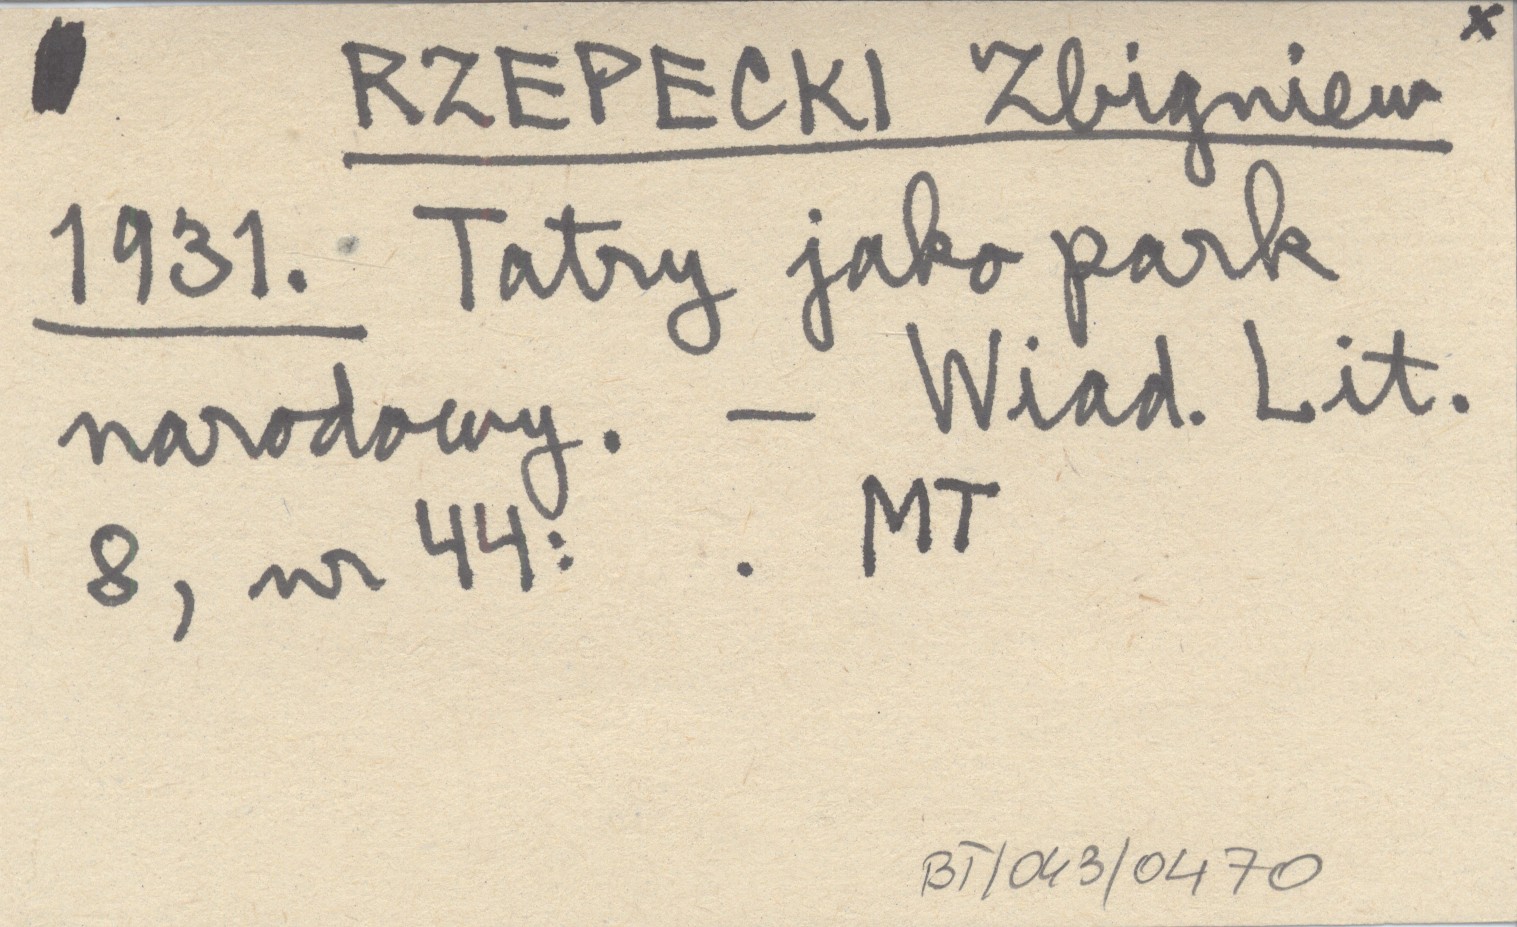 x
RZEPECKI Zbigniew
1931. Tatry jako park
narodowy. — Wiad. Lit.
8, nr 44: . MT
BT/043/0470